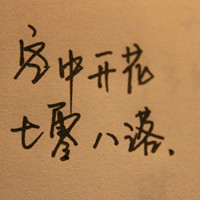 客中开花
七零八落、